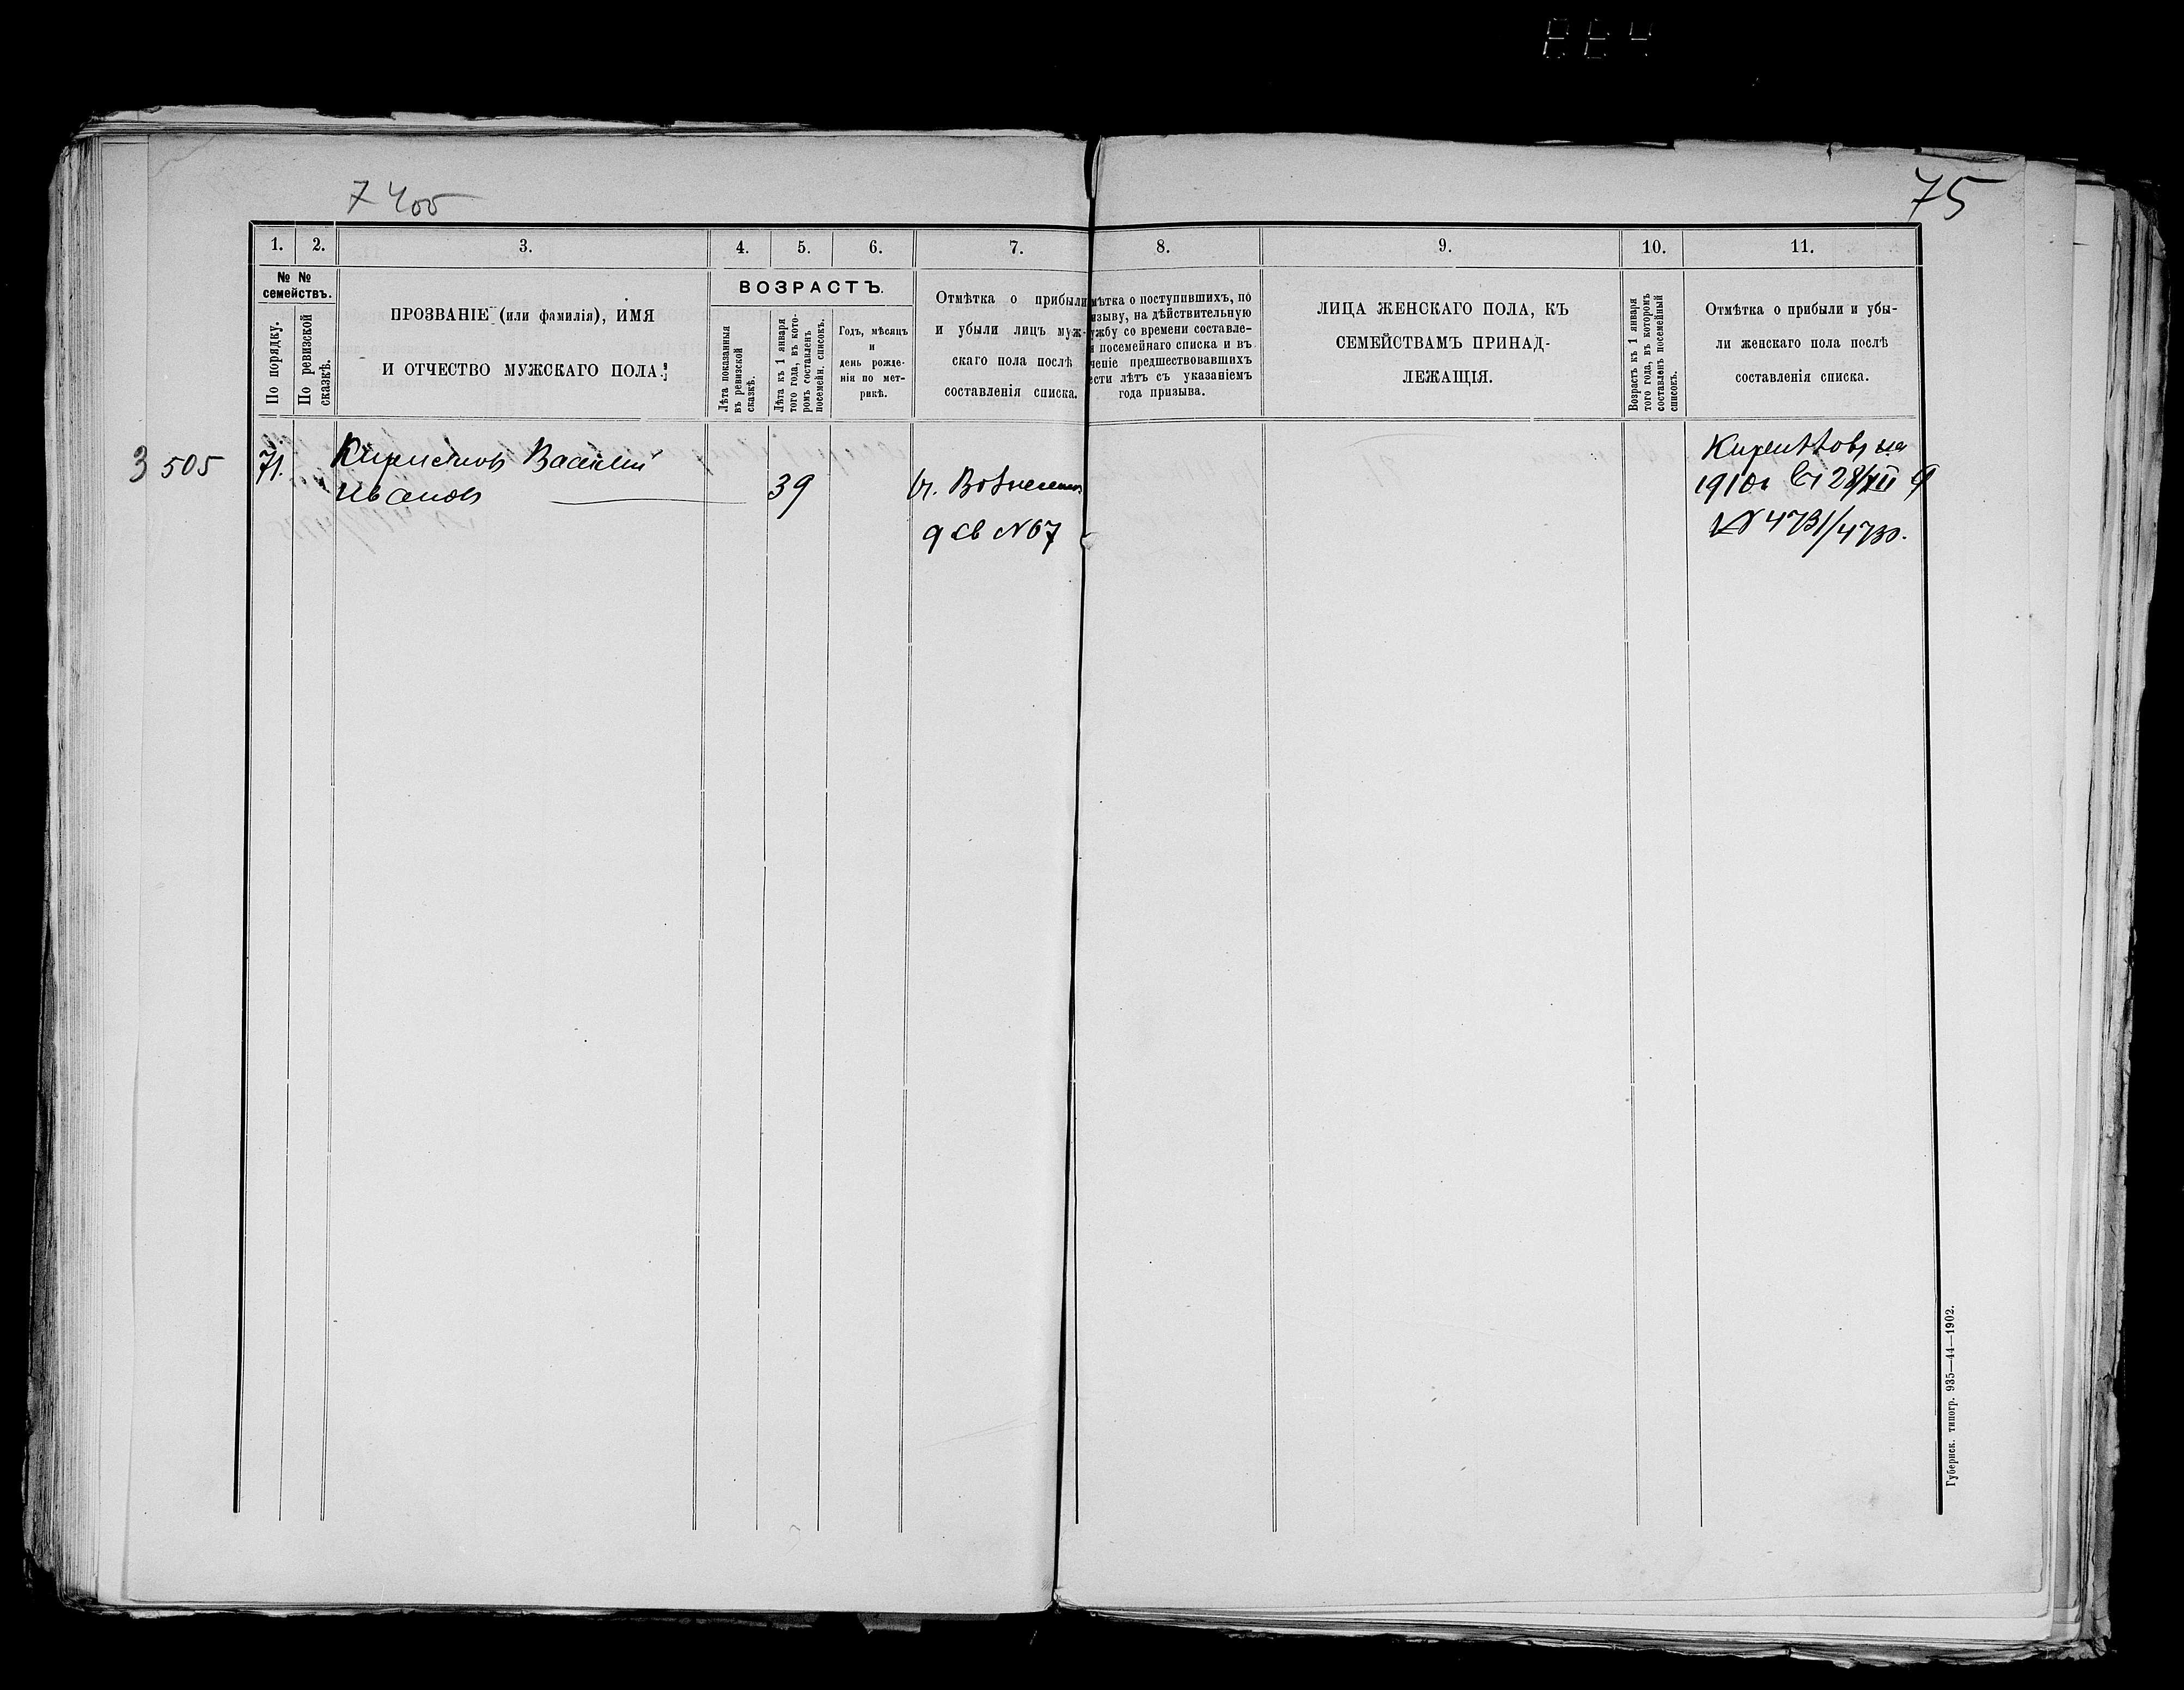 7400
75
1. 2. 3. 4. 5. 6. 7. 8. 9. 10. 11.
№ №
семействъ.
По порядку.
По ревизской
сказкѣ.
ПРОЗВАНІЕ (или фамилія), ИМЯ
И ОТЧЕСТВО МУЖСКАГО ПОЛА.
ВОЗРАСТЪ.
Лѣта показанныя
въ ревизской
сказкѣ.
Лѣта къ 1 января
того года, въ кото-
ромъ составленъ
посемейн. списокъ.
Годъ, мѣсяцъ
и
день рожде-
нія по мет-
рикѣ.
Отмѣтка о прибыли
и убыли лицъ муж-
скаго пола послѣ
составленія списка.
мѣтка о поступившихъ, по
изыву, на дѣйствительную
ужбу со времени составле-
я посемейнаго списка и въ
ченіе предшествовавшихъ
ести лѣтъ съ указаніемъ
года призыва.
ЛИЦА ЖЕНСКАГО ПОЛА, КЪ
СЕМЕЙСТВАМЪ ПРИНАД-
ЛЕЖАЩІЯ.
Возрастъ къ 1 января
того года, въ которомъ
составленъ посемейный
списокъ.
Отмѣтка о прибыли и убы-
ли женскаго пола послѣ
составленія списка.
3 505
71.
Василій
Ивановъ
39
9 св №67
на
1910г 28/XII 9
№ 4731/4730.
Губернск. типогр. 935—44—1902.